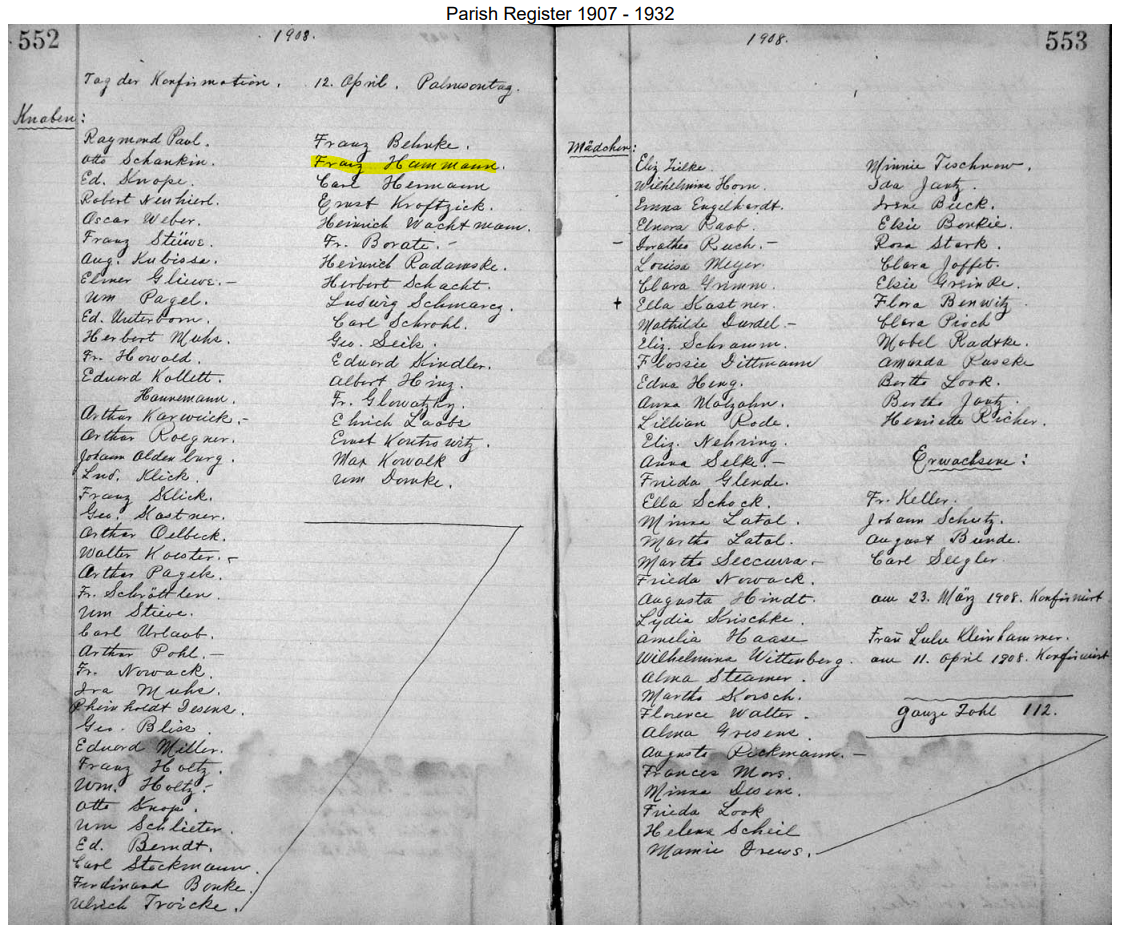 Parish Register 1907 - 1932
552
1908.
Tag der Konfirmation. 12. April. Palmsontag.
Knaben:
Raymond Paul.
Otto Schankin.
Ed. Knope.
Robert Neuhierl.
Oscar Weber.
Franz Stüwe.
Aug. Kubissa.
Elmer Gliewe. -
Wm Pagel.
Ed. Unterborn.
Herbert Muhs.
Fr. Howald.
Eduard Kollett.
Hannemann.
Arthur Karwick. -
Arthur Roegner.
Johann Oldenburg.
Lud. Klick.
Franz Klick.
Geo. Kastner.
Arthur Oelbeck.
Walter Koester. -
Arthur Pagek.
Fr. Schröttlen.
Wm Stieve.
Carl Urlaub.
Arthur Pohl. -
Fr. Nowack.
Ira Muhs.
Rheinholdt Desens.
Geo. Bliss.
Eduard Miller.
Franz Holtz.
Wm. Holtz. -
Otto Knop.
Wm Schlieter.
Ed. Berndt.
Carl Stockmann.
Ferdinand Bonke.
Ulrich Troicke.
Franz Behnke.
Franz Hammann.
Carl Hermann
Ernst Kroftzick.
Heinrich Wachtmann.
Fr. Borate. -
Heinrich Radawske.
Herbert Schacht.
Ludwig Schmarcy.
Carl Schrohl.
Geo. Seik.
Eduard Kindler.
Albert Hinz.
Fr. Glowatzky.
Ehrich Laabs
Ernst Kontrowitz.
Max Kowalk
Wm Domke.
553
1908.
Mädchen:
Eliz Zielke.
Wilhelmina Horn.
Emma Engelhardt.
Elnora Raab.
- Dorathea Ruch. -
Louisa Meyer
Clara Grimm.
+ Ella Kastner.
Mathilde Durdel. -
Eliz. Schramm.
Flossie Dittmann
Edna Heng.
Anna Malzahn.
Lillian Rode.
Eliz. Nehring.
Anna Selke. -
Frieda Glende.
Ella Schock.
Minna Latal.
Martha Latal.
Martha Seccurra -
Frieda Nowack.
Augusta Hindt.
Lydia Krischke.
Amelia Haase
Wilhelmina Wittenberg.
Alma Steamer.
Martha Korsch.
Florence Walter.
Alma Gresens.
Augusta Dieckmann. -
Frances Mors.
Minna Desens.
Frieda Look
Helena Scheil
Mamie Drews.
Minnie Tischnow.
Ida Jantz.
Irene Bieck.
Elsie Bonkie.
Rosa Stark.
Clara Joffet.
Elsie Greinke.
Flora Benwitz
Clara Pioch
Mabel Radtke.
Amanda Raseke
Bertha Look.
Bertha Jantz.
Henriette Richer.
Erwachsene:
Fr. Keller.
Johann Schutz.
August Bunde.
Carl Seegler.
am 23. März 1908. Konfirmirt
Frau Lulu Kleinhammer.
am 11. April 1908. Konfirmirt
ganze Zahl 112.